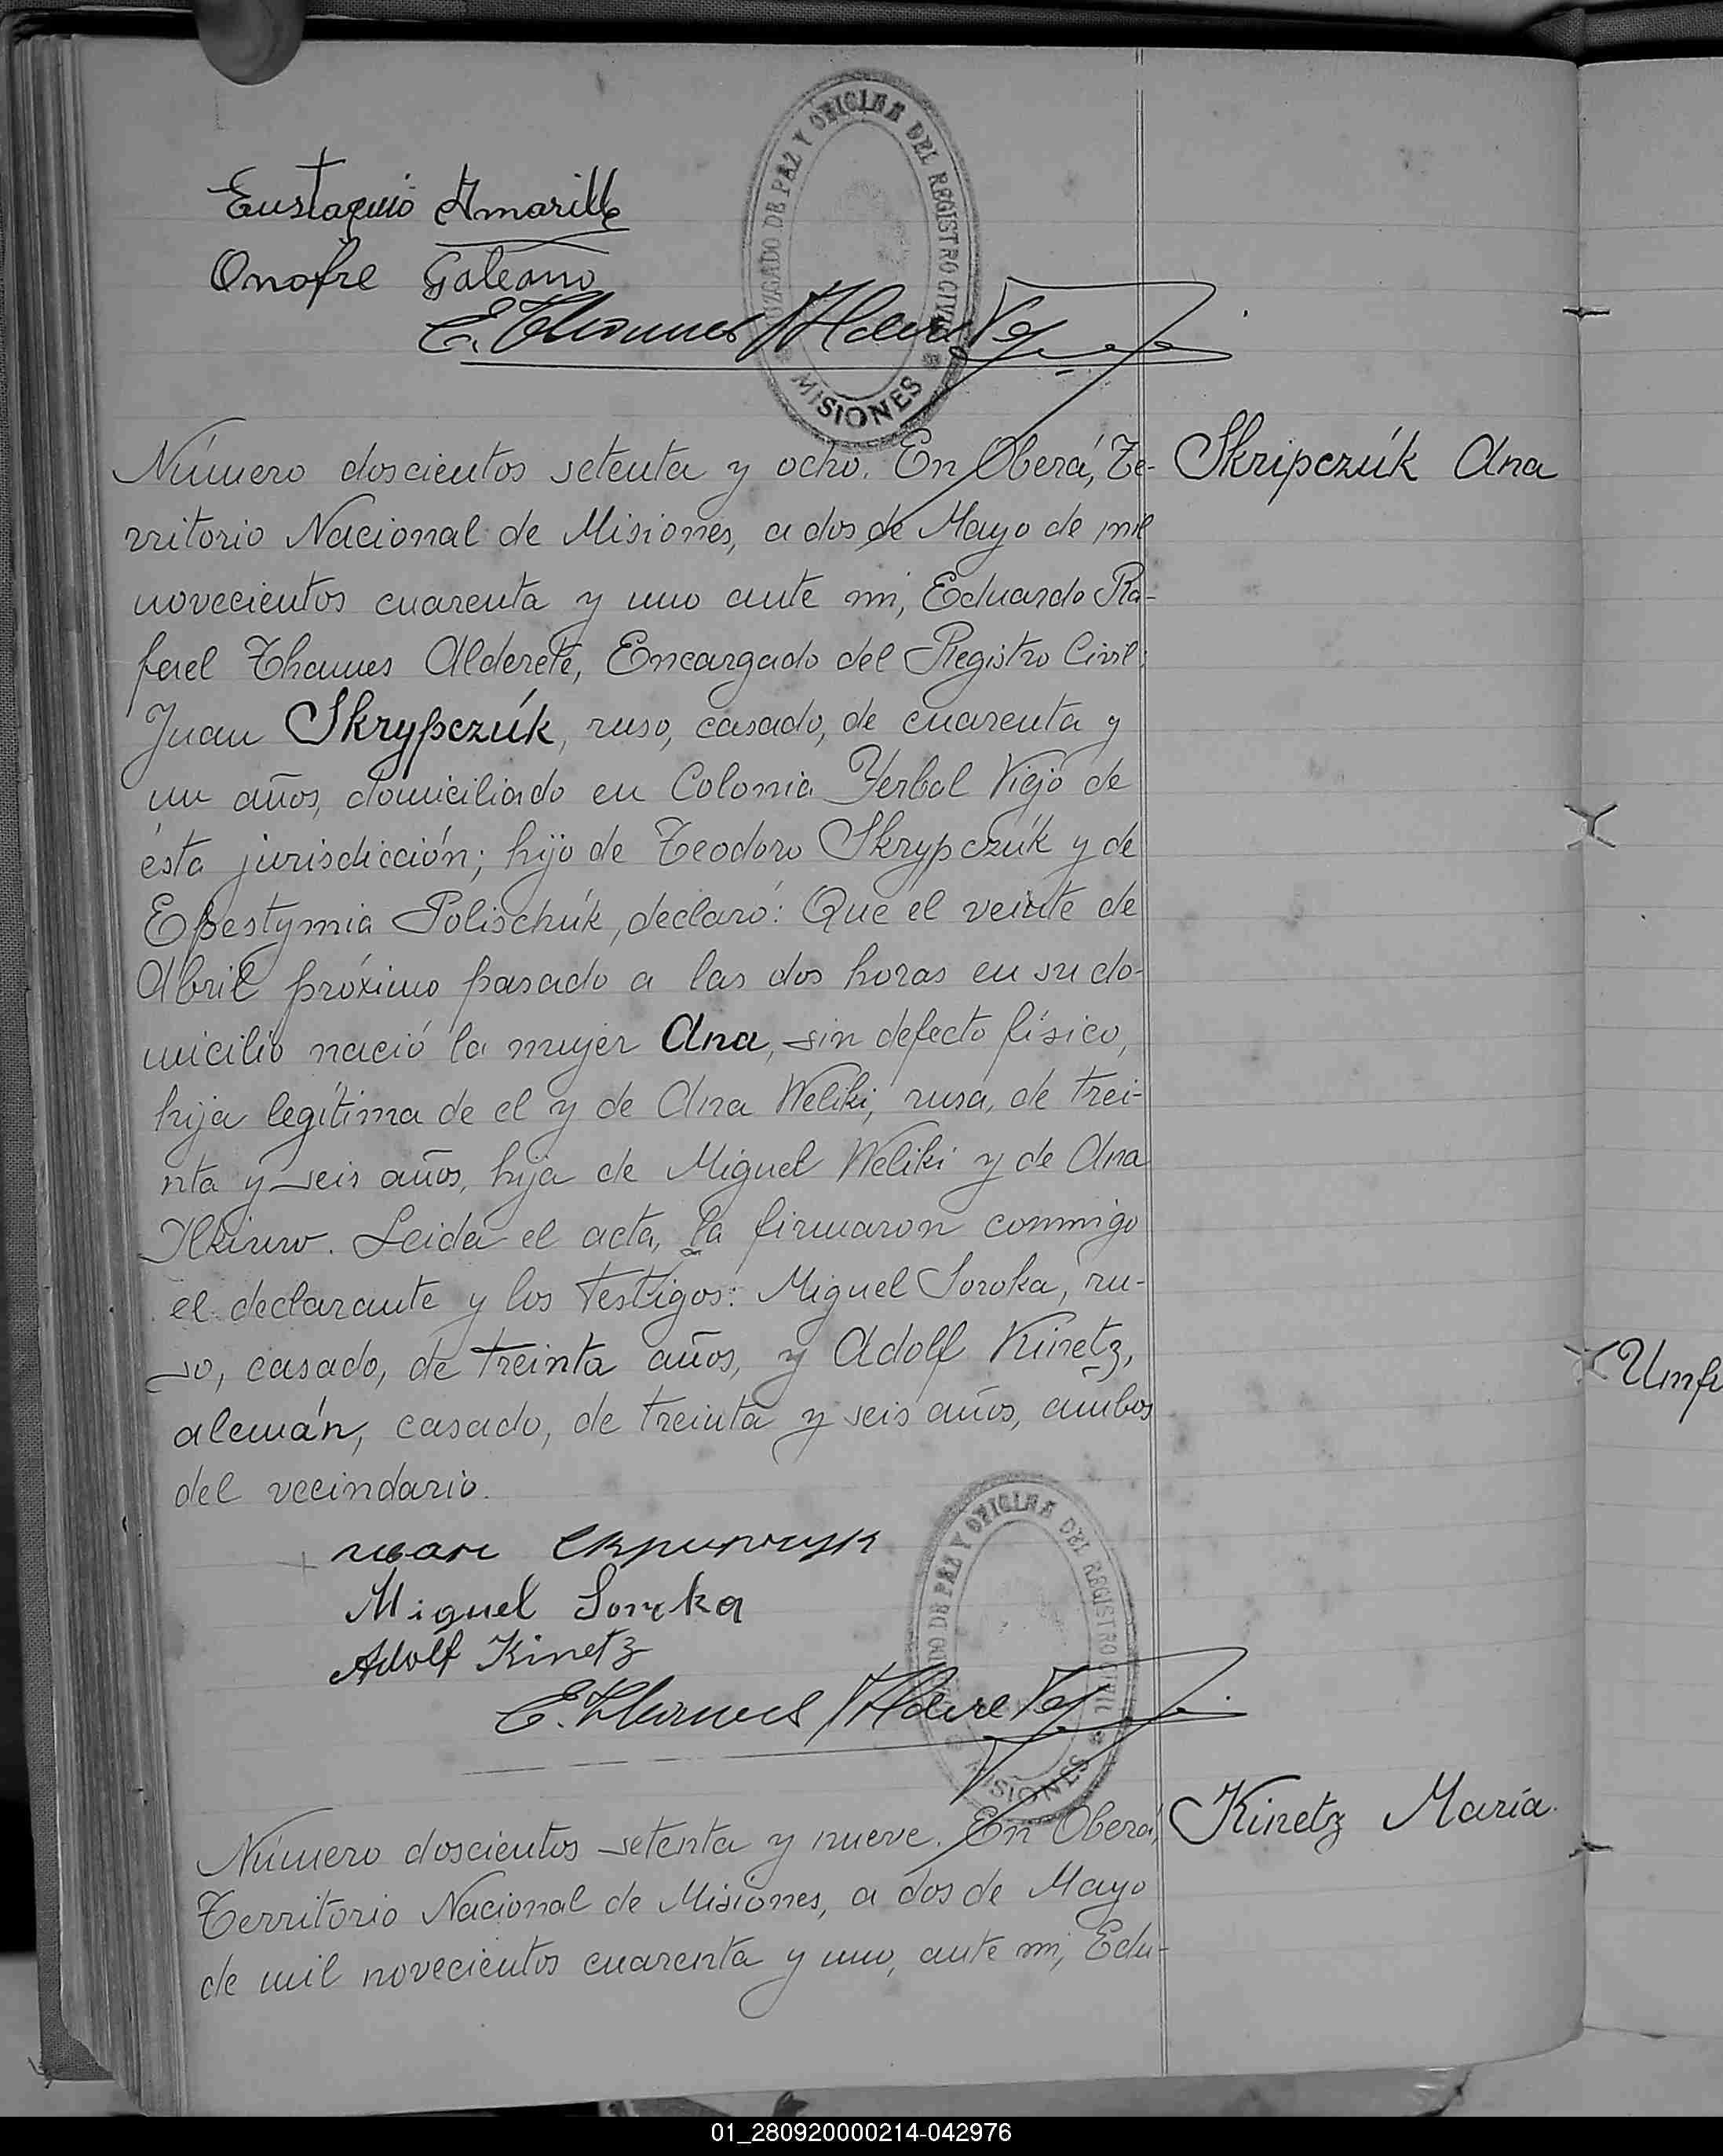 Eustaquio Amarilla
Onofre Galeano
E. Thames Alderete
JUZGADO DE PAZ Y OFICINA DEL REGISTRO CIVIL
MISIONES
Número doscientos setenta y ocho. En Oberá, Te-
Skripczúk Ana
rritorio Nacional de Misiones, a dos de Mayo de mil
novecientos cuarenta y uno ante mi, Eduardo Ra-
fael Thames Alderete, Encargado del Registro Civil;
Juan Skrypczúk, ruso, casado, de cuarenta y
un años, domiciliado en Colonia Yerbal Viejo de
ésta jurisdicción; hijo de Teodoro Skrypczúk y de
Epestymia Polischúk, declaró: Que el veinte de
Abril próximo pasado a las dos horas en su do-
micilio nació la mujer Ana, sin defecto físico,
hija legítima de el y de Ana Weliki, rusa, de trei-
nta y seis años, hija de Miguel Weliki y de Ana
Leida el acta, la firmaron conmigo
el declarante y los testigos: Miguel Soroka, ru-
so, casado, de treinta años, y Adolf Kinetz,
alemán, casado, de treinta y seis años, ambos
del vecindario.
иван скрипчук
Miguel Soroka
Adolf Kinetz
E. Thames Alderete
JUZGADO DE PAZ Y OFICINA DEL REGISTRO CIVIL
MISIONES
Número doscientos setenta y nueve. En Oberá,
Kinetz María.
Territorio Nacional de Misiones, a dos de Mayo
de mil novecientos cuarenta y uno, ante mi, Edu-
01_280920000214-042976